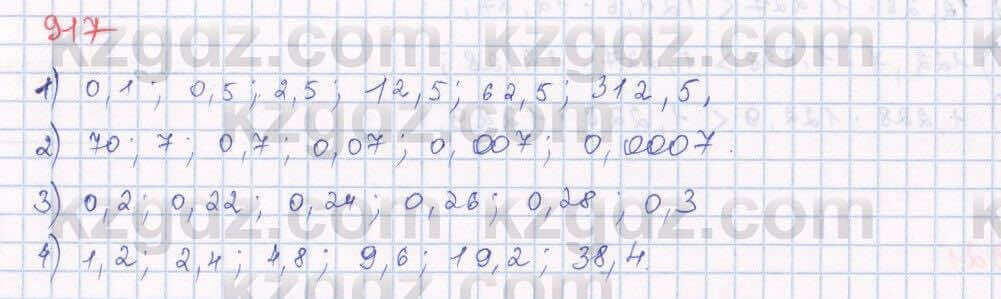 917
1) 0,1; 0,5; 2,5; 12,5; 62,5; 312,5,
2) 70; 7; 0,7; 0,07; 0,007; 0,0007.
3) 0,2; 0,22; 0,24; 0,26; 0,28; 0,3
4) 1,2; 2,4; 4,8; 9,6; 19,2; 38,4.
kzgdz.com kzgdz.com
kzgdz.com
kzgdz.com kzgdz.com